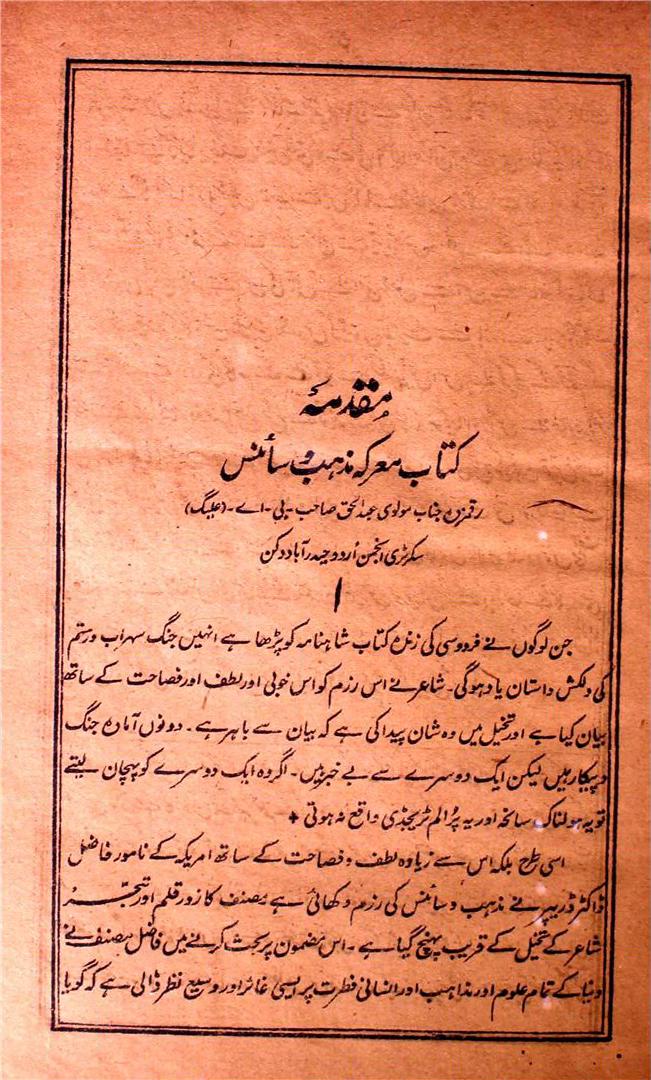 مقدمۂ
کتاب معرکہ مذہب و سائنس
رقمزدہ جناب مولوی عبدالحق صاحب - بی - اے - (علیگ)
سکرٹری انجمن اُردو حیدرآباد دکن
۱
جن لوگوں نے فردوسی کی زندہ کتاب شاہنامہ کو پڑھا ہے انہیں جنگ سہراب و رستم
کی دلکش داستان یاد ہوگی۔ شاعر نے اس رزم کو اس خوبی اور لطف اور فصاحت کے ساتھ
بیان کیا ہے اور تخیل میں وہ شان پیدا کی ہے کہ بیان سے باہر ہے۔ دونوں آمادہ جنگ
و پیکار ہیں لیکن ایک دوسرے سے بے خبر ہیں۔ اگر وہ ایک دوسرے کو پہچان لیتے
تو یہ ہولناک سانحہ اور یہ پُر الم ٹریجڈی واقع نہ ہوتی +
اسی طرح بلکہ اس سے زیادہ لطف و فصاحت کے ساتھ امریکہ کے نامور فاضل
ڈاکٹر ڈریپر نے مذہب و سائنس کی رزم دکھائی ہے مصنف کا زور قلم اور تبحّر
شاعر کے تخیل کے قریب پہنچ گیا ہے۔ اس مضمون پر بحث کرنے میں فاضل مصنف نے
دنیا کے تمام علوم اور مذاہب اور انسانی فطرت پر ایسی غائر اور وسیع نظر ڈالی ہے کہ گویا